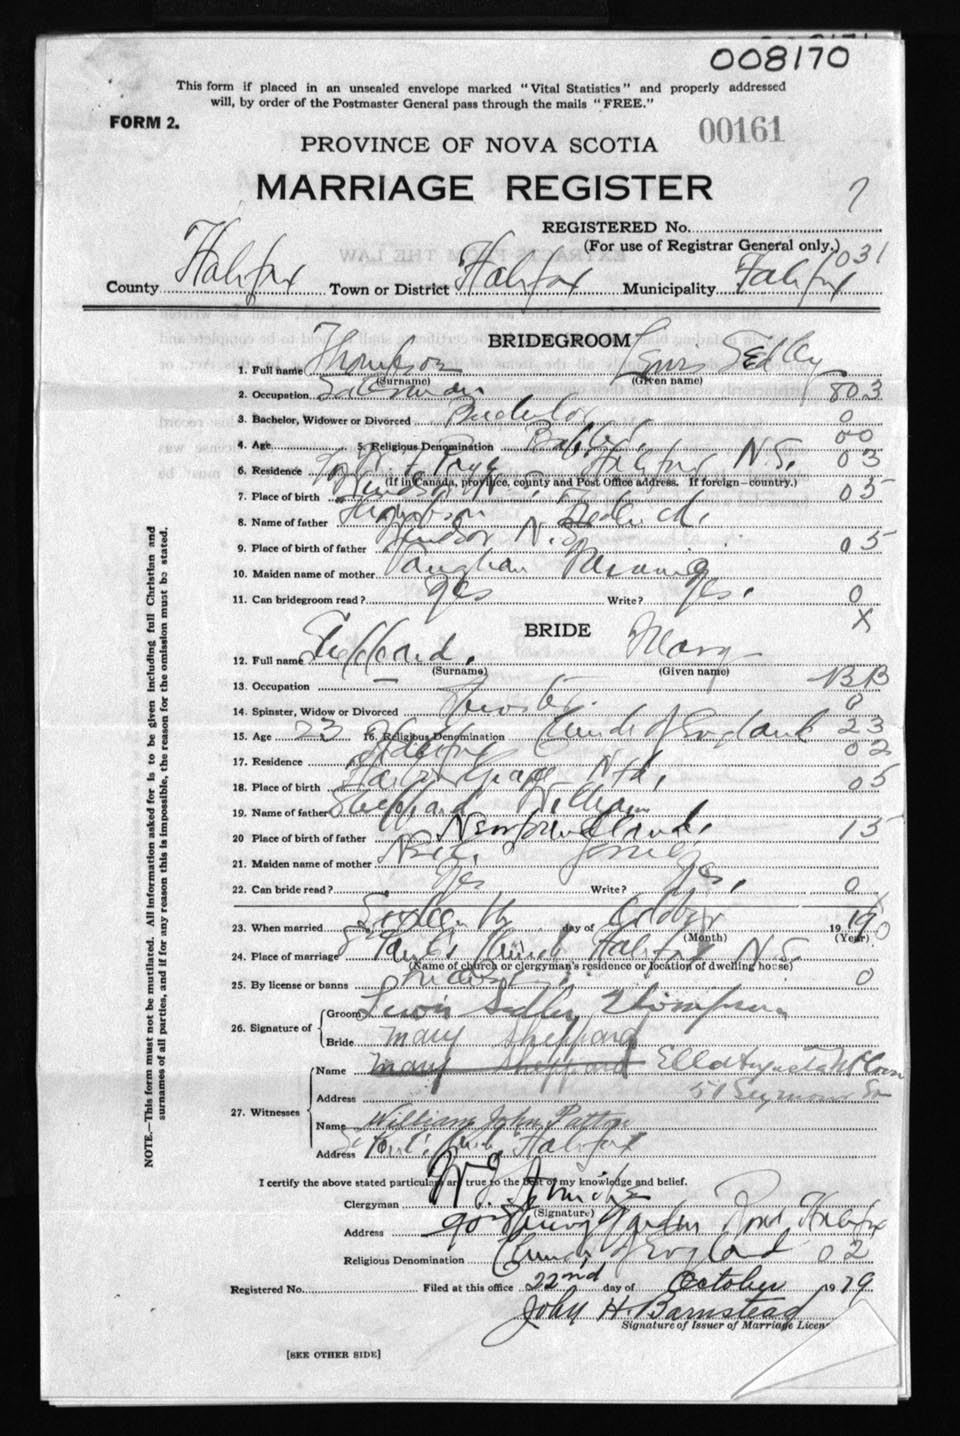 008170
This form if placed in an unsealed envelope marked "Vital Statistics" and properly addressed
will, by order of the Postmaster General pass through the mails "FREE."
FORM 2.
00161
PROVINCE OF NOVA SCOTIA
MARRIAGE REGISTER
REGISTERED No.
(For use of Registrar General only.)
031
County Halifax Town or District Halifax Municipality Halifax
BRIDEGROOM
1. Full name Thompson
(Surname) (Given name)
2. Occupation Salesman 803
3. Bachelor, Widower or Divorced Bachelor 0
4. Age 5. Religious Denomination 00
6. Residence Halifax N.S. 03
(If in Canada, province, county and Post Office address. If foreign—country.)
7. Place of birth Windsor N.S. 05
8. Name of father Thompson Frederick.
9. Place of birth of father Windsor N.S. 05
10. Maiden name of mother Vaughan
11. Can bridegroom read? Yes Write? Yes. 0
X
BRIDE
12. Full name Sheppard. Mary
(Surname) (Given name)
13. Occupation BB
14. Spinster, Widow or Divorced Spinster. 0
15. Age 23 16. Religious Denomination Church of England 23
17. Residence Halifax 02
18. Place of birth Harbor Grace Nfld. 05
19. Name of father Sheppard William
20 Place of birth of father Newfoundland. 15
21. Maiden name of mother
22. Can bride read? Yes Write? Yes. 0
23. When married Sixteenth day of October 19
(Month) (Year)
24. Place of marriage St Paul's Church Halifax N.S.
(Name of church or clergyman's residence or location of dwelling house)
25. By license or banns 0
26. Signature of Groom Lewis Sedley Thompson
Bride Mary Sheppard
27. Witnesses Name Mary Sheppard Ella Augusta
Address 51 Seymour St
Name William John Patton
Address St Paul's Halifax
I certify the above stated particulars are true to the best of my knowledge and belief.
Clergyman
(Signature)
Address Road Halifax
Religious Denomination Church of England 02
Registered No. Filed at this office 22nd day of October 1919
John H. Barnstead
Signature of Issuer of Marriage Licen
[SEE OTHER SIDE]
NOTE.—This form must not be mutilated. All information asked for is to be given including full Christian and
surnames of all parties, and if for any reason this is impossible, the reason for the omission must be stated.